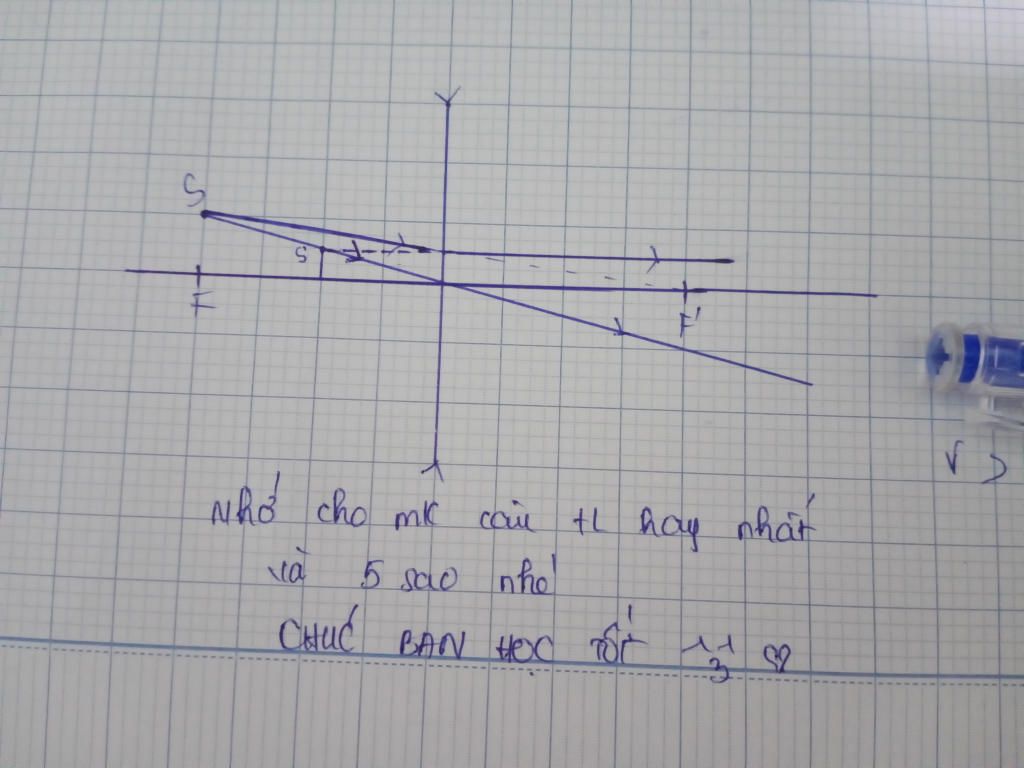 S
S
F
F'
Nhớ cho mk câu tL hay nhất
và 5 sao nhé
CHÚC BẠN HỌC TỐT ^3^ ♡